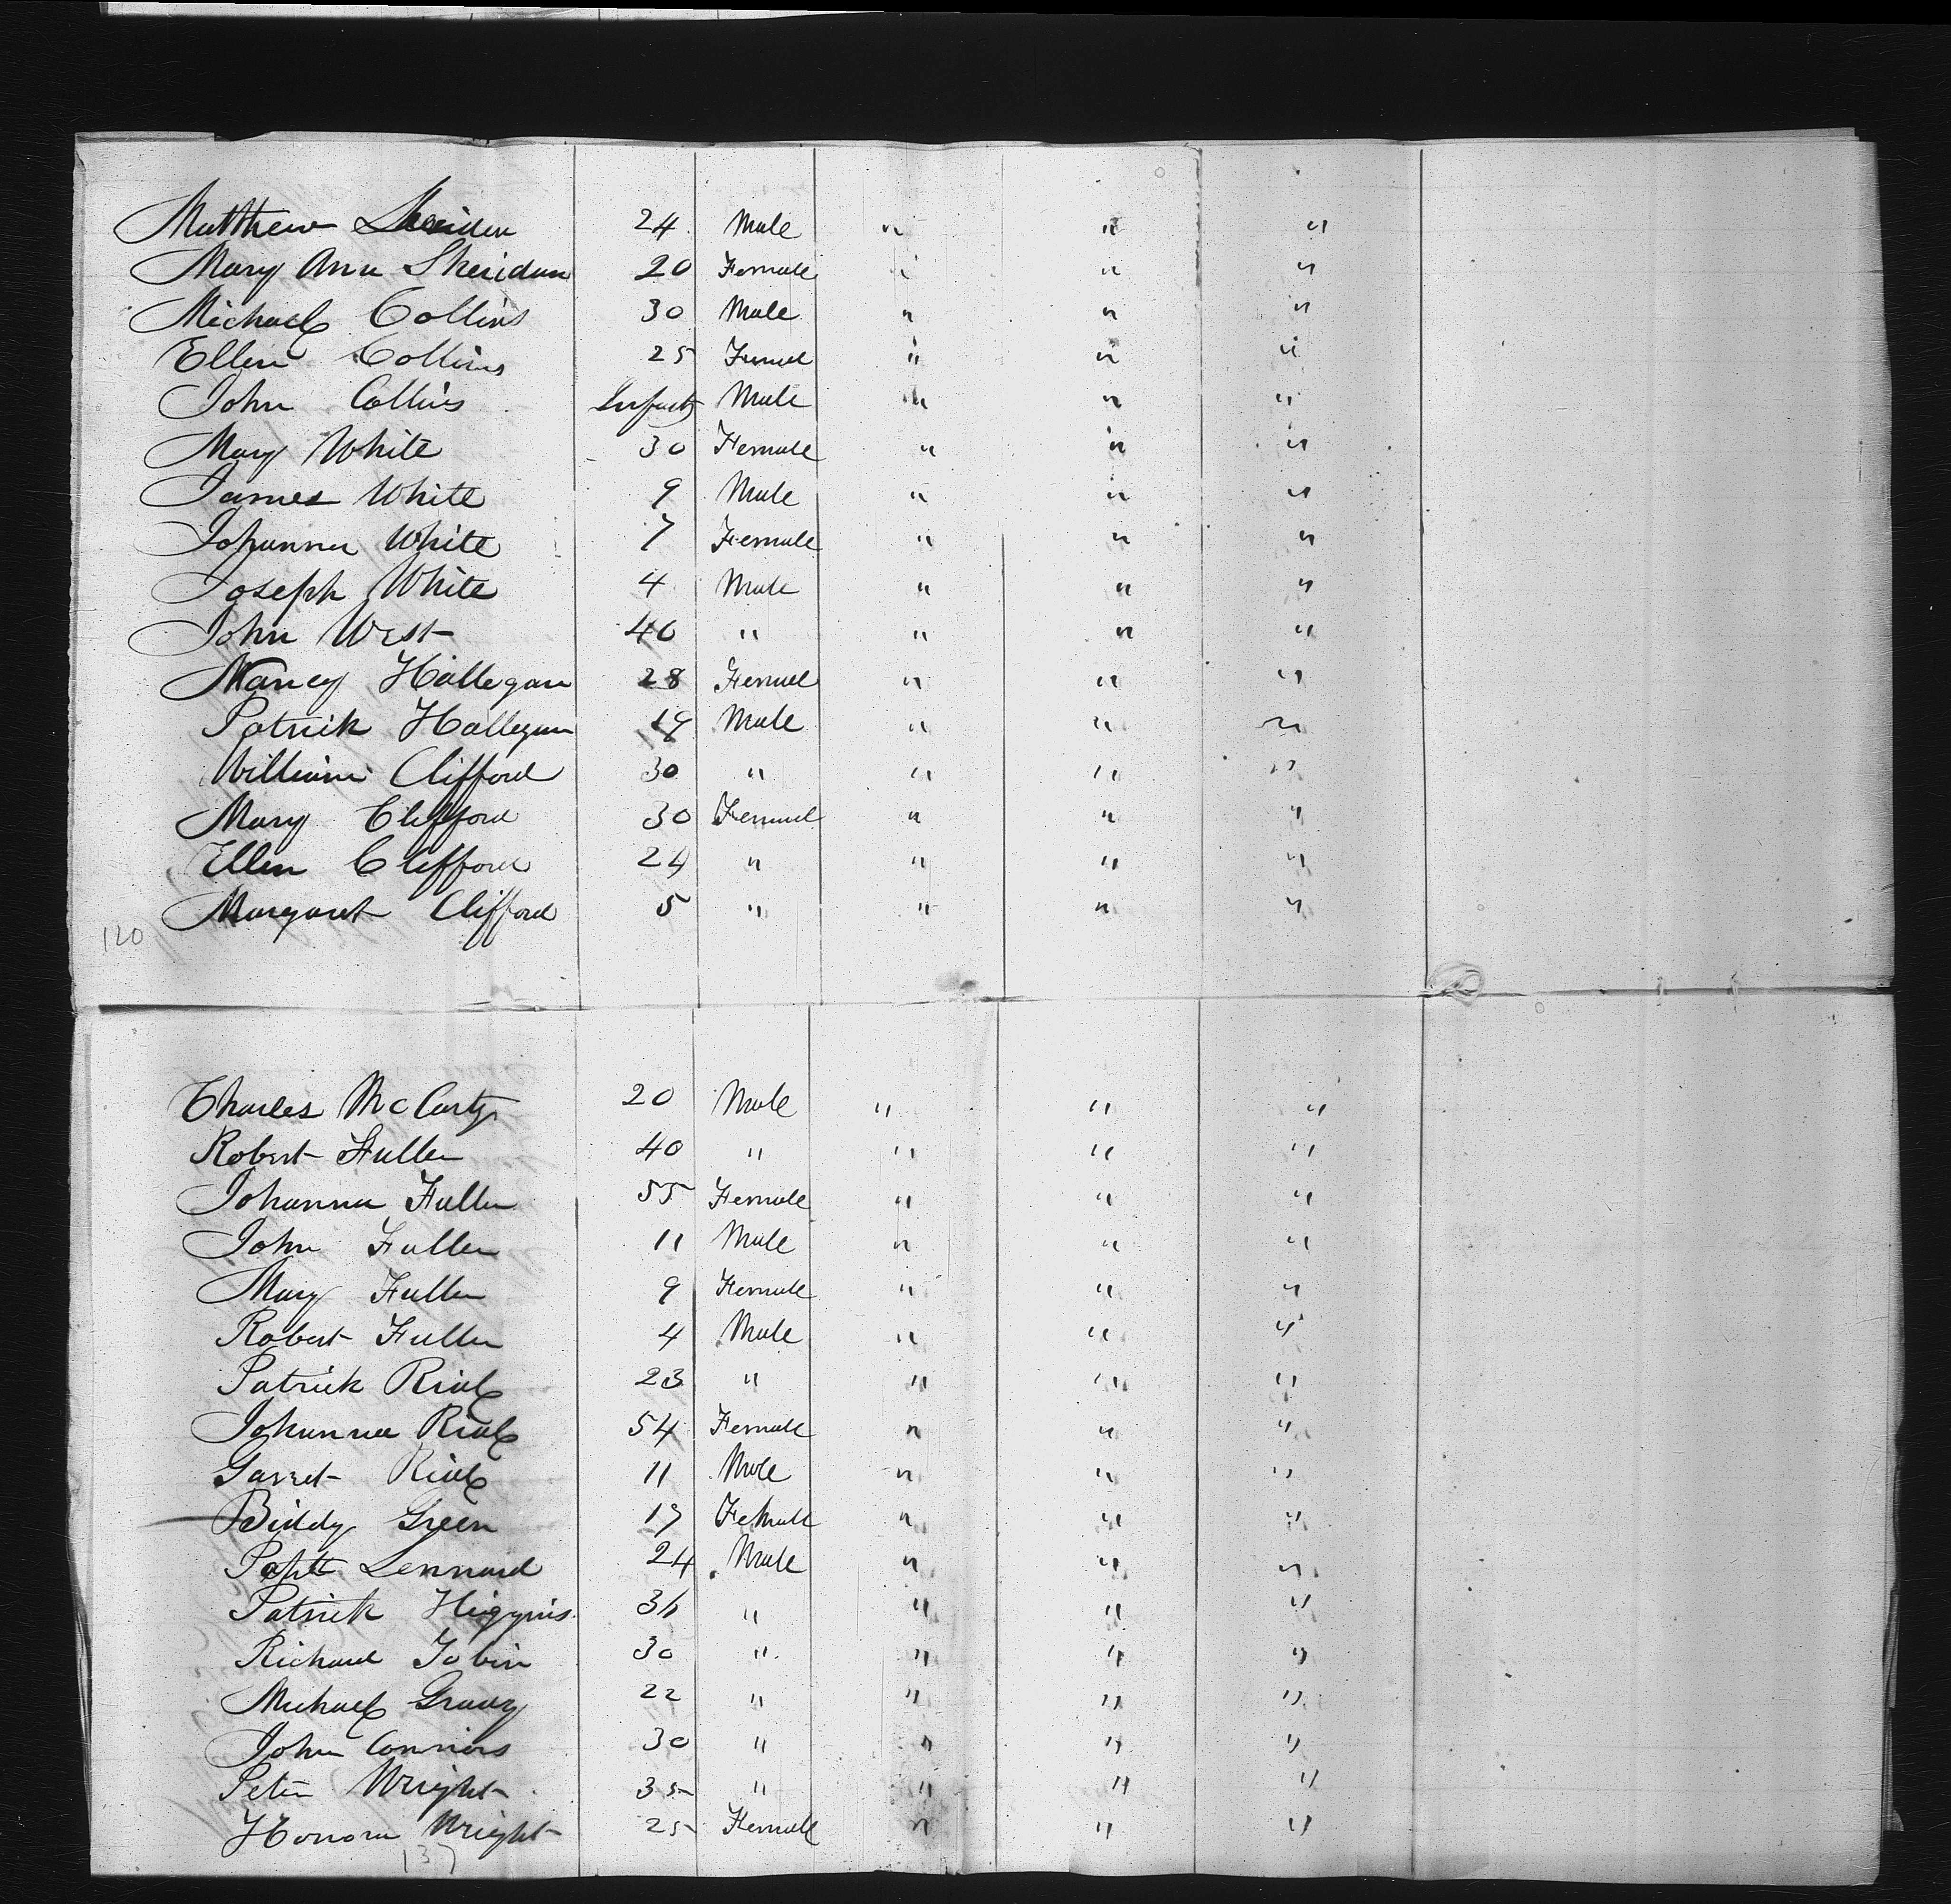 Matthew Sheridan 24 Male " " "
Mary Ann Sheridan 20 Female " " "
Michael Collins 30 Male " " "
Ellen Collins 25 Femal " " "
John Collins Infant Male " " "
Mary White 30 Female " " "
James White 9 Male " " "
Johanna White 7 Female " " "
Joseph White 4 Male " " "
John West 40 " " " "
Nancy Hallegan 28 Femal " " "
Patrick Hallegan 19 Male " " "
William Clifford 30 " " " "
Mary Clifford 30 Femal " " "
Ellen Clifford 24 " " " "
Margaret Clifford 5 " " " "
120
Charles McCarty 20 Male " " "
Robert Fuller 40 " " " "
Johanna Fuller 55 Female " " "
John Fuller 11 Male " " "
Mary Fuller 9 Female " " "
Robert Fuller 4 Male " " "
Patrick Rial 23 " " " "
Johanna Rial 54 Female " " "
Garret Rial 11 Male " " "
Biddy Green 17 Female " " "
Lennard 24 Male " " "
Patrick Higgins 36 " " " "
Richard Tobin 30 " " " "
Michael 22 " " " "
John Connors 30 " " " "
Peter Wright 35 " " " "
Honora Wright 25 Female " " "
137